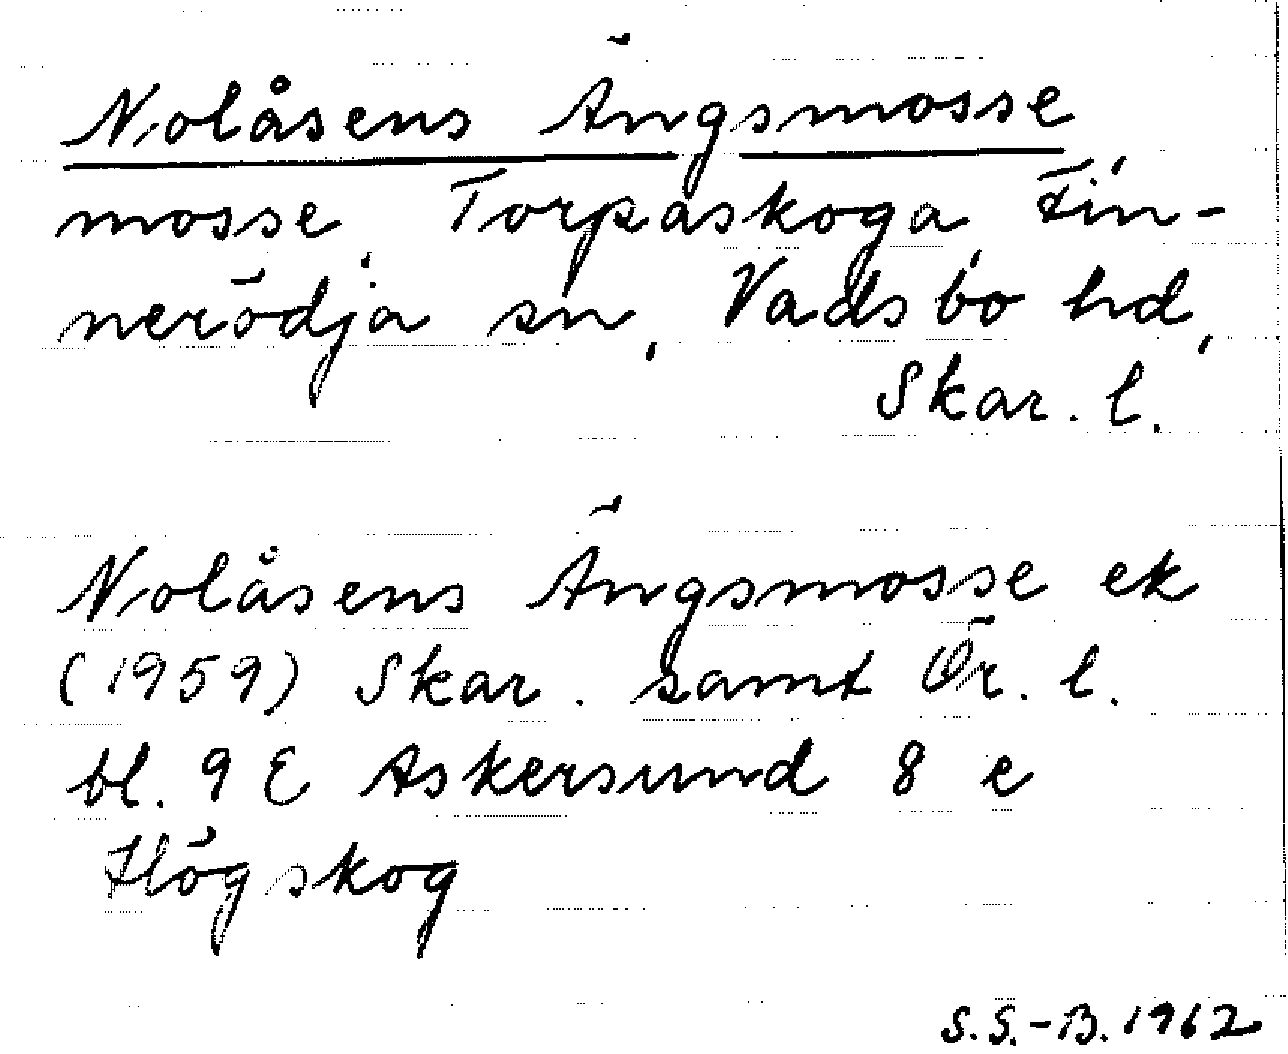 Nolåsens Ängsmosse
mosse, Torpaskoga, Fin-
nerödja sn, Vadsbo hd,
Skar. l.
Nolåsens Ängsmosse ek
(1959) Skar. samt Ör. l.
bl. 9 E Askersund 8 e
Högskog
S.S.-B. 1962